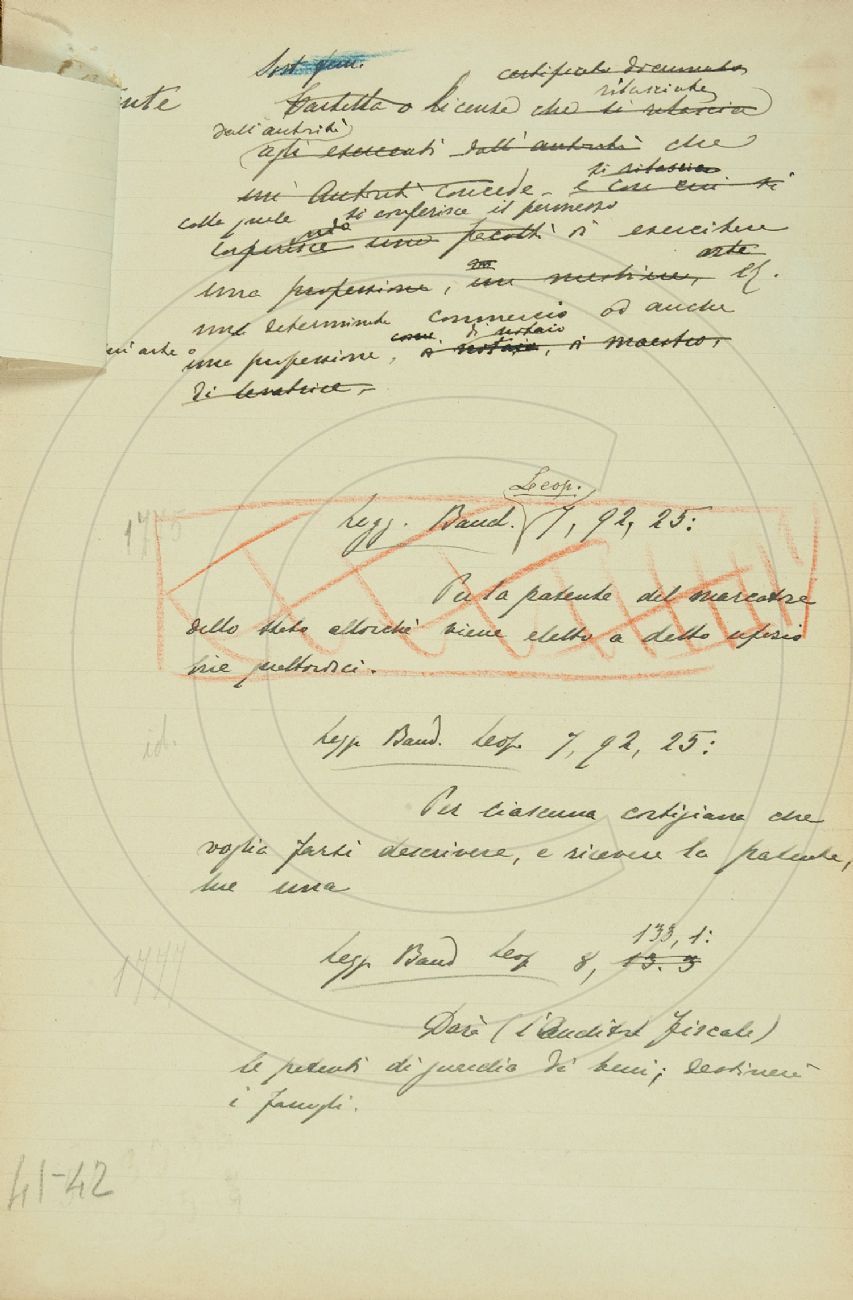 Sost. fem.
certificato documento
rilasciato
Cartella o licenza che si rilascia
dall'autorità
agli esercenti dall'autorità che
si rilascia
un'Autorità concede e con cui si
colla quale si conferisce il permesso
conferisce una facoltà di esercitare
arte
una professione, un mestiere,
una determinato commercio od anche
un'arte o
come di notaio
una professione, di notaio, di maestro,
di levatrice,
Leop.
1775
Legg. Band. 7, 92, 25:
Per la patente del marcatore
dello stato allorchè viene eletto a detto ufizio
lire quattordici.
id.
Legg. Band. Leop. 7, 92, 25:
Per ciascuna cortigiana che
voglia farsi descrivere, e ricevere la patente,
lire una
133, 1:
1777
Legg. Band Leop 8, 13. 3
Darà (l'Auditor fiscale)
le patenti di guardia di beni; destinerà
i famigli.
41-42